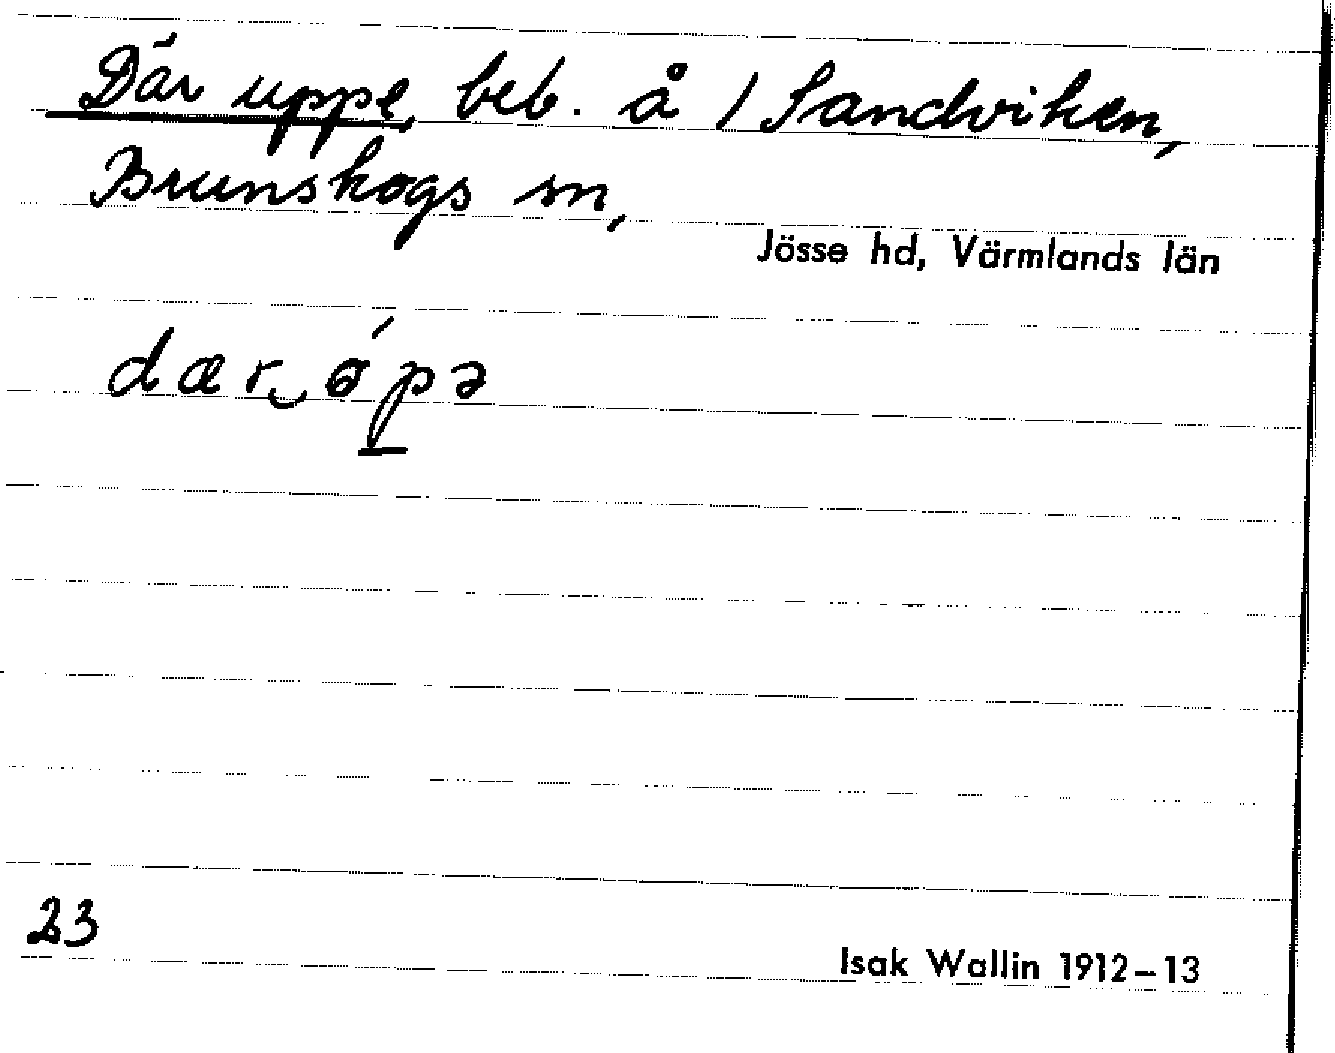 Där uppe, beb. å 1 Sandviken,
Brunskogs sn,
Jösse hd, Värmlands län
dær‿ó̵pə
23
Isak Wallin 1912–13